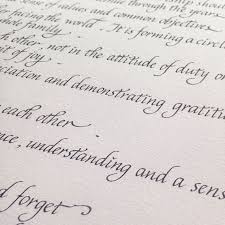 come through the years
of values and common objectives
facing the world. It is forming a circle
whole family.
each other, not in the attitude of duty or
it of joy.
ciation and demonstrating gratitu
each other.
nce, understanding and a sens
d forget